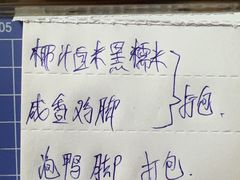 05
椰汁西米黑糯米
咸香鸡脚 } 打包.
泡鸭脚 打包.